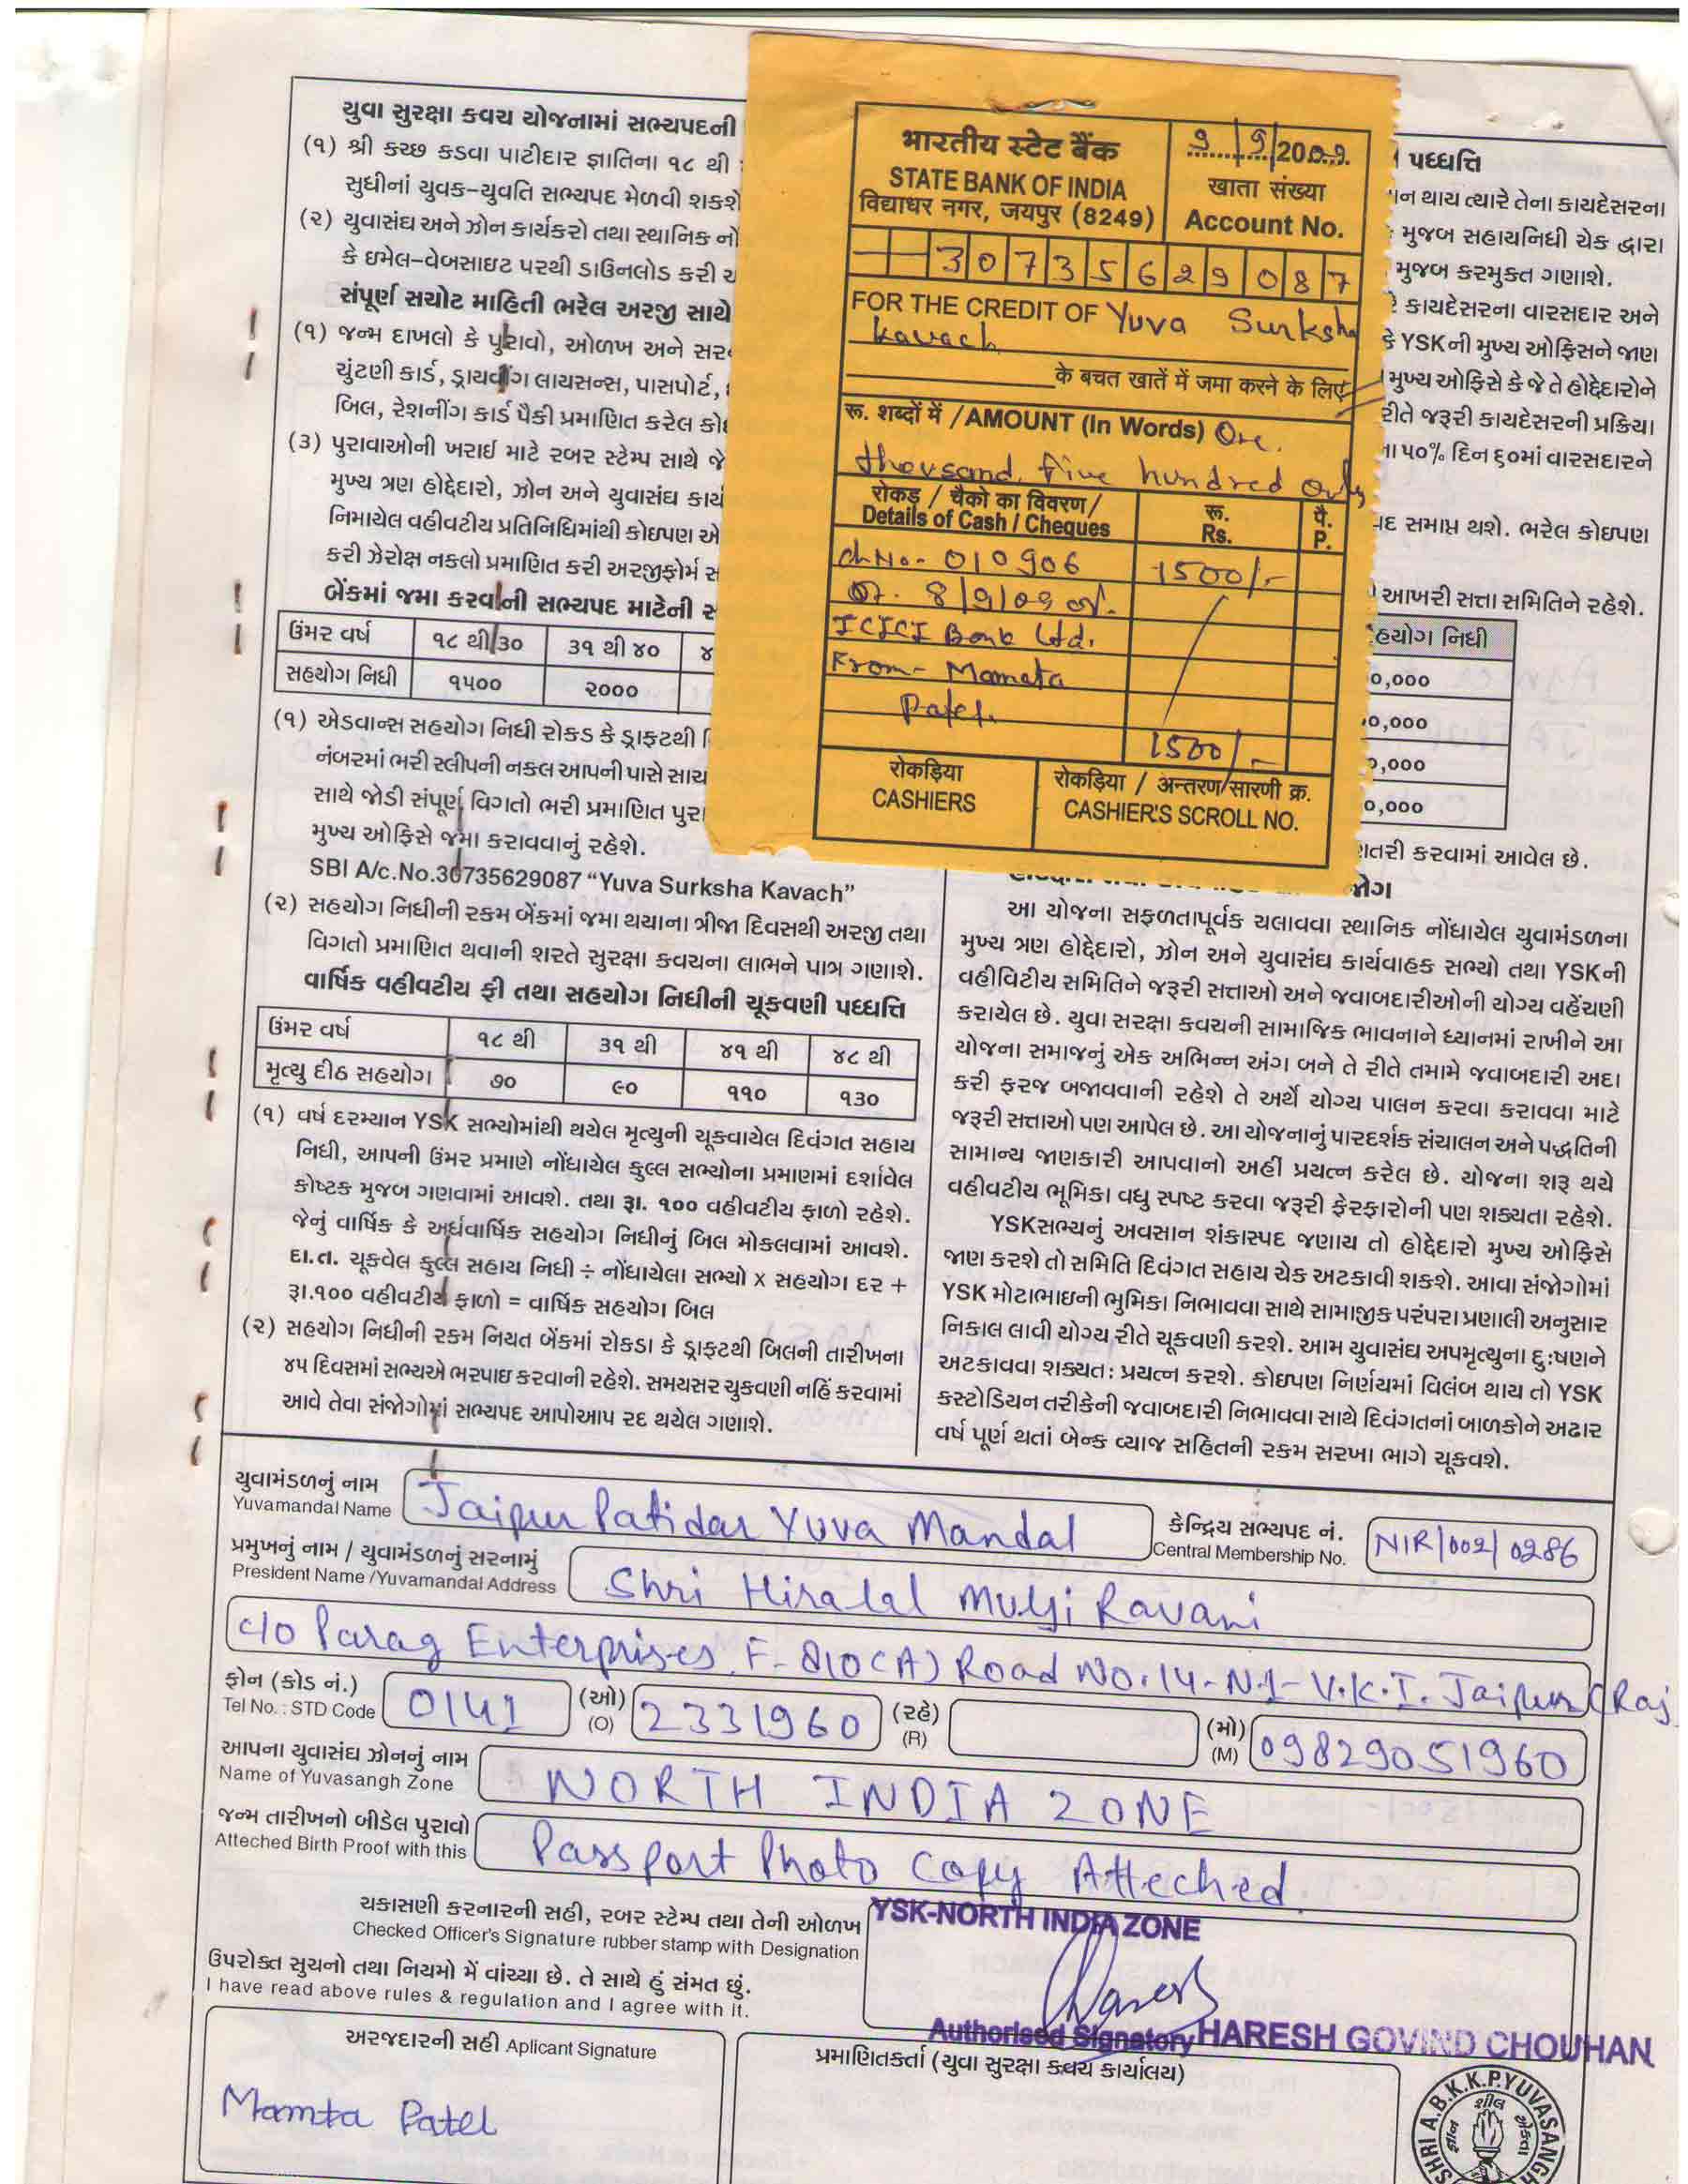 યુવા સુરક્ષા કવચ યોજનામાં સભ્યપદની
(૧) શ્રી કચ્છ કડવા પાટીદાર જ્ઞાતિના ૧૮ થી
સુધીનાં યુવક-યુવતિ સભ્યપદ મેળવી શકશે
(૨) યુવાસંઘ અને ઝોન કાર્યકરો તથા સ્થાનિક નો
કે ઇમેલ-વેબસાઇટ પરથી ડાઉનલોડ કરી
સંપૂર્ણ સચોટ માહિતી ભરેલ અરજી સાથે
(૧) જન્મ દાખલો કે પુરાવો, ઓળખ અને
ચુંટણી કાર્ડ, ડ્રાયવીંગ લાયસન્સ, પાસપોર્ટ,
બિલ, રેશનીંગ કાર્ડ પૈકી પ્રમાણિત કરેલ
(૩) પુરાવાઓની ખરાઇ માટે રબર સ્ટેમ્પ સાથે જે
મુખ્ય ત્રણ હોદ્દેદારો, ઝોન અને યુવાસંઘ કાર્ય
નિમાયેલ વહીવટીય પ્રતિનિધિમાંથી કોઇપણ એ
કરી ઝેરોક્ષ નકલો પ્રમાણિત કરી અરજીફોર્મ
બેંકમાં જમા કરવાની સભ્યપદ માટેની
ઉંમર વર્ષ ૧૮ થી ૩૦ ૩૧ થી ૪૦ ૪
સહયોગ નિધી ૧૫૦૦ ૨૦૦૦
(૧) એડવાન્સ સહયોગ નિધી રોકડ કે ડ્રાફટથી
નંબરમાં ભરી સ્લીપની નકલ આપની પાસે સાચ
સાથે જોડી સંપૂર્ણ વિગતો ભરી પ્રમાણિત પુરા
મુખ્ય ઓફિસે જમા કરાવવાનું રહેશે.
SBI A/c.No.30735629087 “Yuva Surksha Kavach”
(૨) સહયોગ નિધીની રકમ બેંકમાં જમા થયાના ત્રીજા દિવસથી અરજી તથા
વિગતો પ્રમાણિત થવાની શરતે સુરક્ષા કવચના લાભને પાત્ર ગણાશે.
વાર્ષિક વહીવટીય ફી તથા સહયોગ નિધીની ચૂકવણી પધ્ધત્તિ
ઉંમર વર્ષ ૧૮ થી ૩૧ થી ૪૧ થી ૪૮ થી
મૃત્યુ દીઠ સહયોગ ૭૦ ૯૦ ૧૧૦ ૧૩૦
(૧) વર્ષ દરમ્યાન YSK સભ્યોમાંથી થયેલ મૃત્યુની ચૂકવાયેલ દિવંગત સહાય
નિધી, આપની ઉંમર પ્રમાણે નોંધાયેલ કુલ્લ સભ્યોના પ્રમાણમાં દર્શાવેલ
કોષ્ટક મુજબ ગણવામાં આવશે. તથા રૂા. ૧૦૦ વહીવટીય ફાળો રહેશે.
જેનું વાર્ષિક કે અર્ધવાર્ષિક સહયોગ નિધીનું બિલ મોકલવામાં આવશે.
દા.ત. ચૂકવેલ કુલ્લ સહાય નિધી ÷ નોંધાયેલા સભ્યો x સહયોગ દર +
રૂા.૧૦૦ વહીવટીય ફાળો = વાર્ષિક સહયોગ બિલ
(૨) સહયોગ નિધીની રકમ નિયત બેંકમાં રોકડા કે ડ્રાફટથી બિલની તારીખના
૪૫ દિવસમાં સભ્યએ ભરપાઇ કરવાની રહેશે. સમયસર ચુકવણી નહિં કરવામાં
આવે તેવા સંજોગોમાં સભ્યપદ આપોઆપ રદ થયેલ ગણાશે.
भारतीय स्टेट बैंक
STATE BANK OF INDIA
विद्याधर नगर, जयपुर (8249)
9/9/2009.
खाता संख्या
Account No.
30735629087
FOR THE CREDIT OF Yuva Surksha
kavach
के बचत खातें में जमा करने के लिए
रू. शब्दों में / AMOUNT (In Words) One
thousand five hundred only
रोकड़ / चैको का विवरण / रू. पै.
Details of Cash / Cheques Rs. P.
ch No- 010906 1500/-
Dt. 8/9/09
ICICI Bank Ltd.
From- Mamata
Patel.
1500/-
रोकड़िया
CASHIERS
रोकड़िया / अन्तरण/सारणी क्र.
CASHIER'S SCROLL NO.
પધ્ધત્તિ
થાય ત્યારે તેના કાયદેસરના
મુજબ સહાયનિધી ચેક દ્વારા
મુજબ કરમુક્ત ગણાશે.
કાયદેસરના વારસદાર અને
કે YSKની મુખ્ય ઓફિસને જાણ
મુખ્ય ઓફિસે કે જે તે હોદ્દેદારોને
રીતે જરૂરી કાયદેસરની પ્રક્રિયા
ના ૫૦% દિન ૬૦માં વારસદારને
સમાપ્ત થશે. ભરેલ કોઇપણ
આખરી સત્તા સમિતિને રહેશે.
હયોગ નિધી
0,૦૦૦
૦,૦૦૦
૦,૦૦૦
૦,૦૦૦
ણતરી કરવામાં આવેલ છે.
જોગ
આ યોજના સફળતાપૂર્વક ચલાવવા સ્થાનિક નોંધાયેલ યુવામંડળના
મુખ્ય ત્રણ હોદ્દેદારો, ઝોન અને યુવાસંઘ કાર્યવાહક સભ્યો તથા YSKની
વહીવિટીય સમિતિને જરૂરી સત્તાઓ અને જવાબદારીઓની યોગ્ય વહેંચણી
કરાયેલ છે. યુવા સરક્ષા કવચની સામાજિક ભાવનાને ધ્યાનમાં રાખીને આ
યોજના સમાજનું એક અભિન્ન અંગ બને તે રીતે તમામે જવાબદારી અદા
કરી ફરજ બજાવવાની રહેશે તે અર્થે યોગ્ય પાલન કરવા કરાવવા માટે
જરૂરી સત્તાઓ પણ આપેલ છે. આ યોજનાનું પારદર્શક સંચાલન અને પદ્ધતિની
સામાન્ય જાણકારી આપવાનો અહીં પ્રયત્ન કરેલ છે. યોજના શરૂ થયે
વહીવટીય ભૂમિકા વધુ સ્પષ્ટ કરવા જરૂરી ફેરફારોની પણ શક્યતા રહેશે.
YSKસભ્યનું અવસાન શંકાસ્પદ જણાય તો હોદ્દેદારો મુખ્ય ઓફિસે
જાણ કરશે તો સમિતિ દિવંગત સહાય ચેક અટકાવી શકશે. આવા સંજોગોમાં
YSK મોટાભાઇની ભુમિકા નિભાવવા સાથે સામાજીક પરંપરા પ્રણાલી અનુસાર
નિકાલ લાવી યોગ્ય રીતે ચૂકવણી કરશે. આમ યુવાસંઘ અપમૃત્યુના દુઃષણને
અટકાવવા શક્યતઃ પ્રયત્ન કરશે. કોઇપણ નિર્ણયમાં વિલંબ થાય તો YSK
કસ્ટોડિયન તરીકેની જવાબદારી નિભાવવા સાથે દિવંગતનાં બાળકોને અઢાર
વર્ષ પૂર્ણ થતાં બેન્ક વ્યાજ સહિતની રકમ સરખા ભાગે ચૂકવશે.
યુવામંડળનું નામ
Yuvamandal Name Jaipur Patidar Yuva Mandal
કેન્દ્રિય સભ્યપદ નં.
Central Membership No. NIR/002/0286
પ્રમુખનું નામ / યુવામંડળનું સરનામું
President Name /Yuvamandal Address Shri Hiralal Mulji Ravani
c/o Parag Enterprises F-810(A) Road No.14-N1-V.K.I. Jaipur (Raj
ફોન (કોડ નં.) (ઓ) (રહે) (મો)
Tel No. : STD Code 0141 (O) 2331960 (R) (M) 09829051960
આપના યુવાસંઘ ઝોનનું નામ
Name of Yuvasangh Zone NORTH INDIA ZONE
જન્મ તારીખનો બીડેલ પુરાવો
Atteched Birth Proof with this Passport Photo Copy Atteched
ચકાસણી કરનારની સહી, રબર સ્ટેમ્પ તથા તેની ઓળખ
Checked Officer's Signature rubber stamp with Designation
YSK-NORTH INDIA ZONE
ઉપરોક્ત સુચનો તથા નિયમો મેં વાંચ્યા છે. તે સાથે હું સંમત છું.
I have read above rules & regulation and I agree with it.
Authorised Signatory HARESH GOVIND CHOUHAN
અરજદારની સહી Aplicant Signature
પ્રમાણિતકર્તા (યુવા સુરક્ષા કવચ કાર્યાલય)
Mamta Patel
SHRI A.B.K.K.P.YUVASANGH